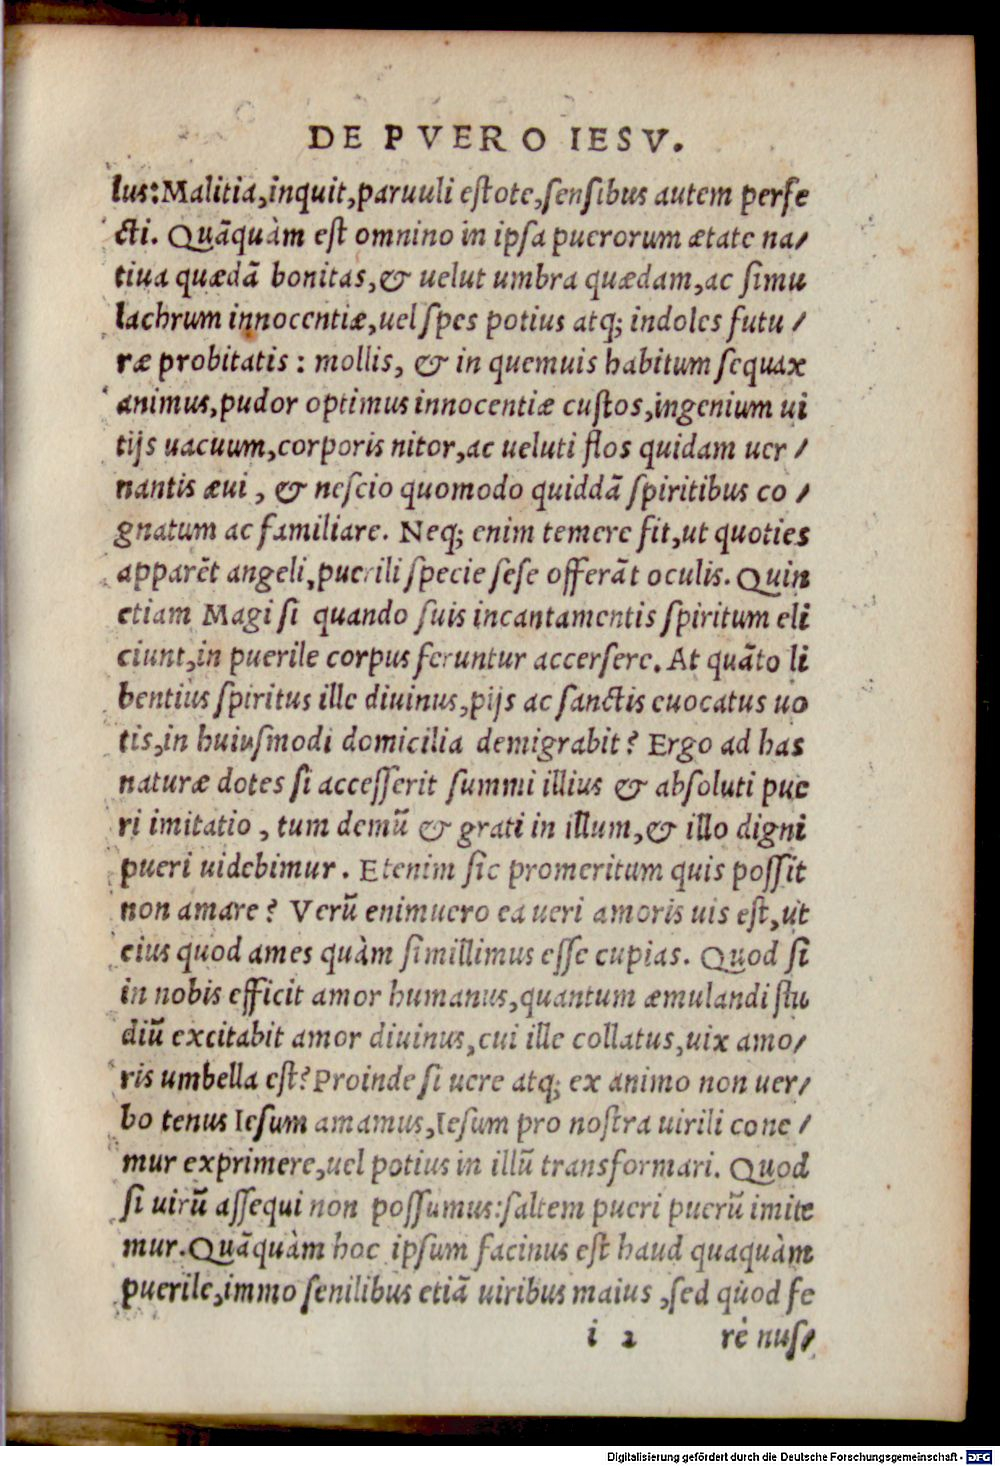 DE PVERO IESV.
lus: Malitia, inquit, paruuli estote, sensibus autem perfe
cti. Quãquàm est omnino in ipsa puerorum ætate na/
tiua quædã bonitas, & uelut umbra quædam, ac simu
lachrum innocentiæ, uel spes potius atq; indoles futu/
ræ probitatis: mollis, & in quemuis habitum sequax
animus, pudor optimus innocentiæ custos, ingenium ui
tijs uacuum, corporis nitor, ac ueluti flos quidam uer/
nantis æui, & nescio quomodo quiddã spiritibus co/
gnatum ac familiare. Neq; enim temere fit, ut quoties
apparẽt angeli, puerili specie sese offerãt oculis. Quin
etiam Magi si quando suis incantamentis spiritum eli
ciunt, in puerile corpus feruntur accersere. At quãto li
bentius spiritus ille diuinus, pijs ac sanctis euocatus uo
tis, in huiusmodi domicilia demigrabit? Ergo ad has
naturæ dotes si accesserit summi illius & absoluti pue
ri imitatio, tum demũ & grati in illum, & illo digni
pueri uidebimur. Etenim sic promeritum quis possit
non amare? Verũ enimuero ea ueri amoris uis est, ut
eius quod ames quàm simillimus esse cupias. Quod si
in nobis efficit amor humanus, quantum æmulandi stu
diũ excitabit amor diuinus, cui ille collatus, uix amo/
ris umbella est? Proinde si uere atq; ex animo non uer/
bo tenus Iesum amamus, Iesum pro nostra uirili cone/
mur exprimere, uel potius in illũ transformari. Quod
si uirũ assequi non possumus: saltem pueri puerũ imite
mur. Quãquàm hoc ipsum facinus est haud quaquàm
puerile, immo senilibus etiã uiribus maius, sed quod fe
i 2 re nus/
Digitalisierung gefördert durch die Deutsche Forschungsgemeinschaft - DFG